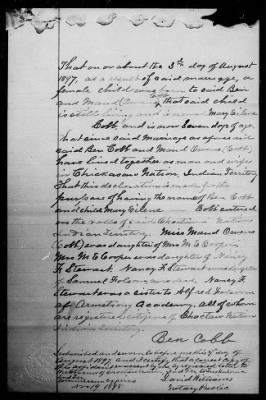 That on or about the 3th day of August
1897, as a result of said marriage, a
female child was born to said Ben
and Maud, that said child
is still living and is named Mary Eilene
Cobb, and is now seven days of age,
that since said marriage as aforesaid
said Ben Cobb and Maud Owens (Cobb)
have lived together as man and wife
in Chickasaw Nation, Indian Territory
That this declaration is made for the
purpose of having the names of Ben Cobb
and child Mary Eilene Cobb entered
on the rolls of said Choctaw Nation
Indian Territory. Miss Maud Owens
(Cobb) was daughter of Mrs M. E. Cooper.
Mrs M. E. Cooper was daughter of Nancy
F. Stewart. Nancy F. Stewart was daughter
of Samuel and Nancy F.
Stewart was a sister to Alfred
of Armstrong Academy. All of whom
are registered citizens of Choctaw Nation
Indian Territory.
Ben Cobb
Subscribed and sworn to before me this day of
August 1897. and I certify that a correct copy of
this by registered letter to
commission expires David Williams
Nov 19 1898 Notary Public